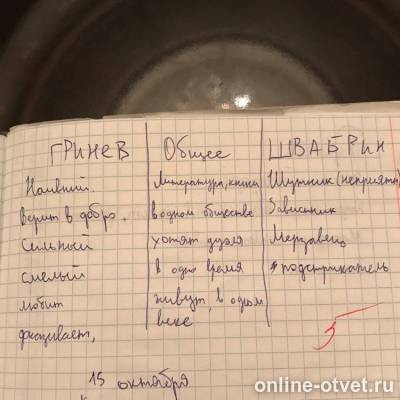 ГРИНЕВ Общее ШВАБРИН
Наивный. Литература, книги Шутник (неприятн)
Верит в добро. в одном обществе Завистник
Сильный хотят дуэля Мерзавец
смелый в одно время подстрикатель
любит живут в одном
веке
5
15 октября
online-otvet.ru